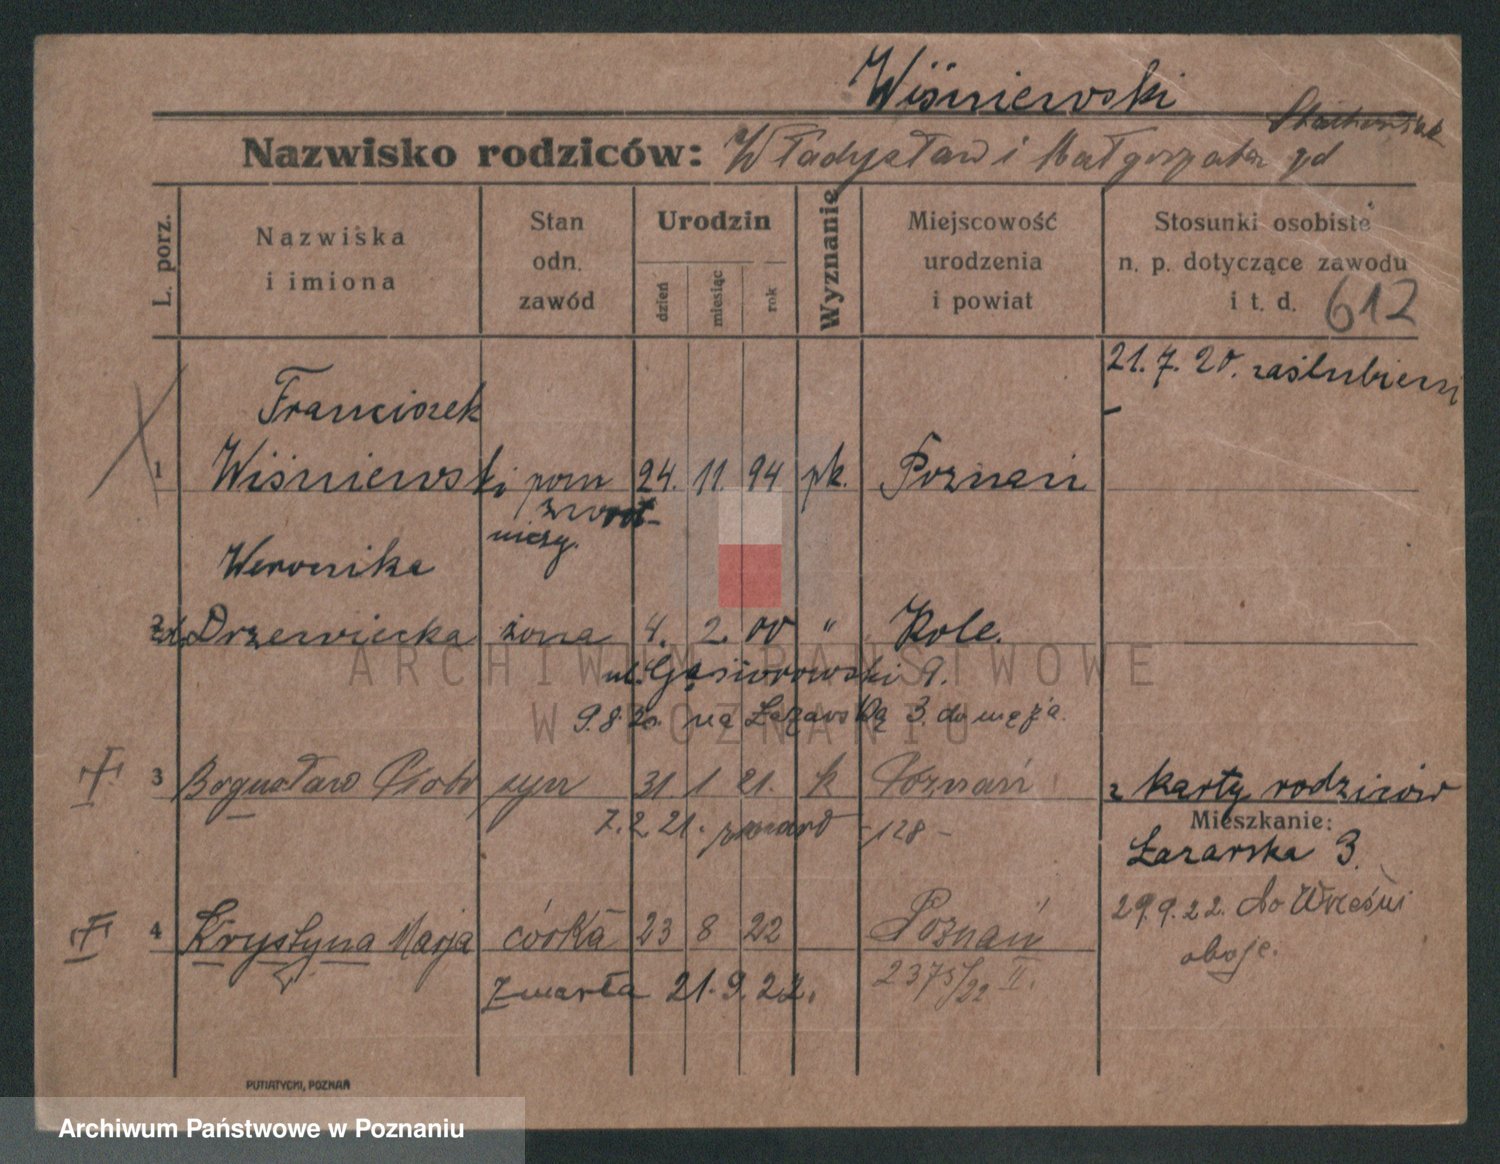 Wiśniewski
Nazwisko rodziców: Władysław i Małgorzata zd
L. porz.
Nazwiska i imiona
Stan odn. zawód
Urodzin
dzień
miesiąc
rok
Wyznanie
Miejscowość urodzenia i powiat
Stosunki osobiste n. p. dotyczące zawodu i t. d. 612
21.7.20. zaślubieni
Franciszek
1 Wiśniewski pom 24. 11. 94 rk. Poznań
niczy.
Weronika
2 Drzewiecka żona 4. 2. 00 " Kole.
ul. Gąsiorowski 9.
9.8.20 na Łazarską 3. do męża.
3 Bogusław Piotr syn 31. 1 21. k Poznań z karty rodziców
7.2.21. zmarł -128-
Mieszkanie:
Łazarska 3.
4 Krystyna Marja córka 23 8 22 Poznań
29.9.22. do Wrześni
oboje.
zmarła 21.9.22. 2375/22 II.
PUTIATYCKI, POZNAŃ
ARCHIWUM PAŃSTWOWE
W POZNANIU
Archiwum Państwowe w Poznaniu